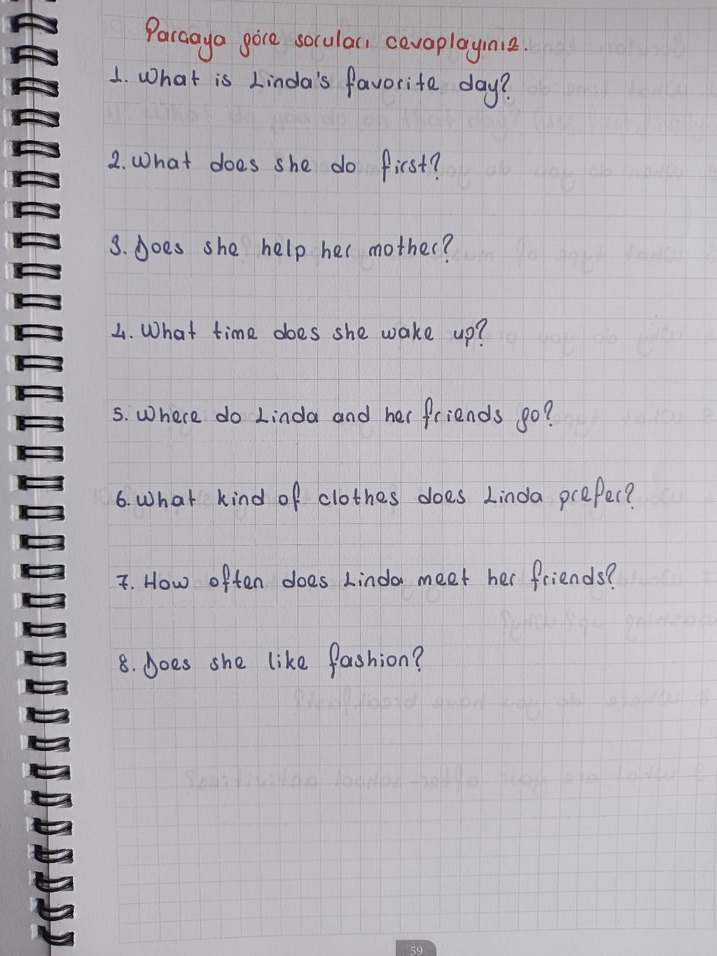 Parçaya göre soruları cevaplayınız.
1. What is Linda's favorite day?
2. What does she do first?
3. Does she help her mother?
4. What time does she wake up?
5. Where do Linda and her friends go?
6. What kind of clothes does Linda prefer?
7. How often does Linda meet her friends?
8. Does she like fashion?
59